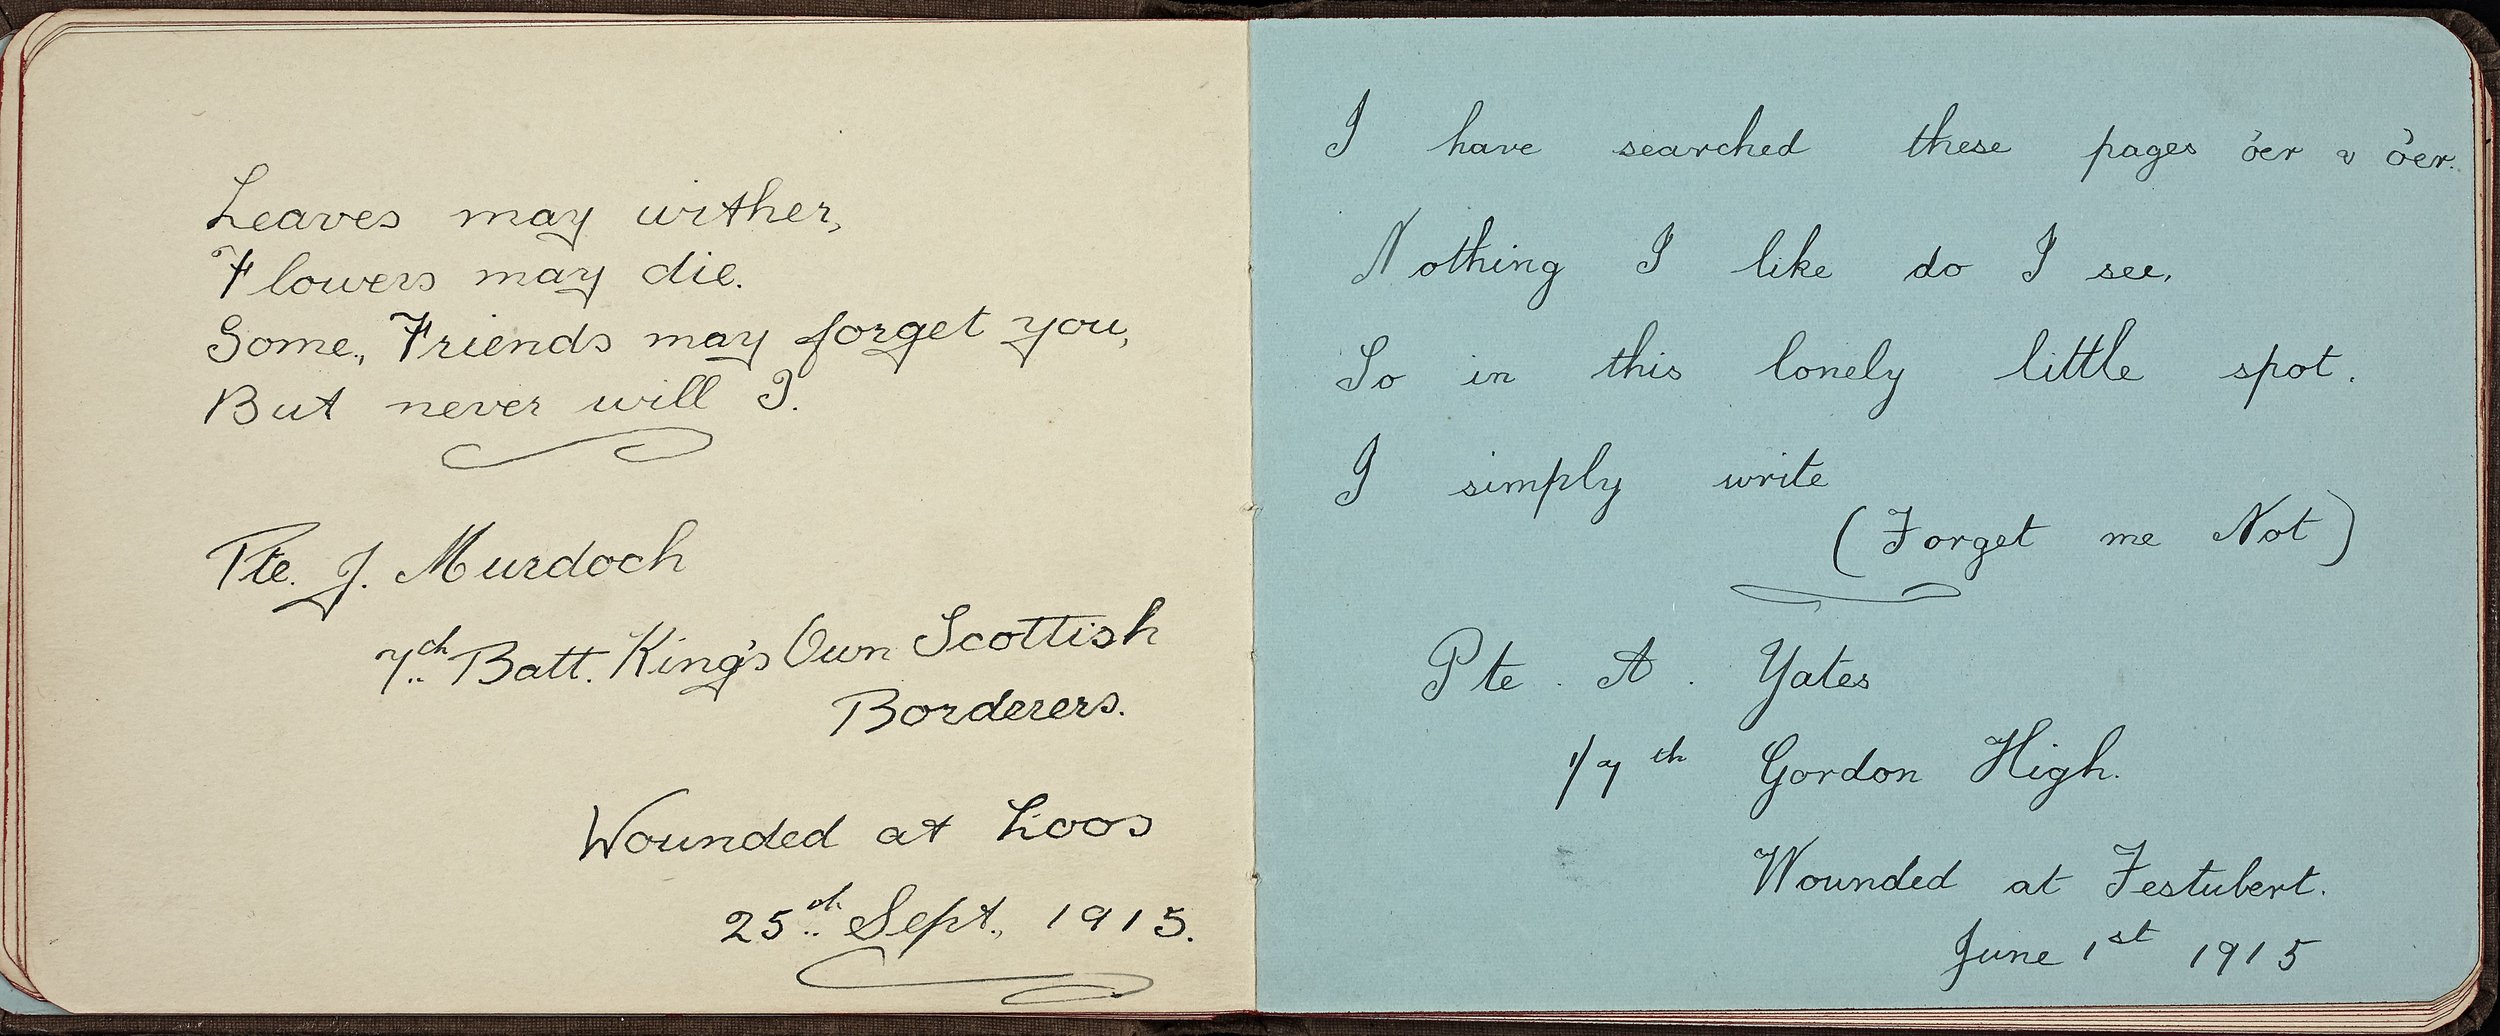 Leaves may wither,
Flowers may die.
Some, Friends may forget you,
But never will I.
Pte. J. Murdoch
7th Batt. King's Own Scottish
Borderers.
Wounded at Loos
25th Sept., 1915.
I have searched these pages o'er & o'er.
Nothing I like do I see,
So in this lonely little spot.
I simply write
(Forget me Not)
Pte. A. Yates
1/7th Gordon High.
Wounded at Festubert.
June 1st 1915